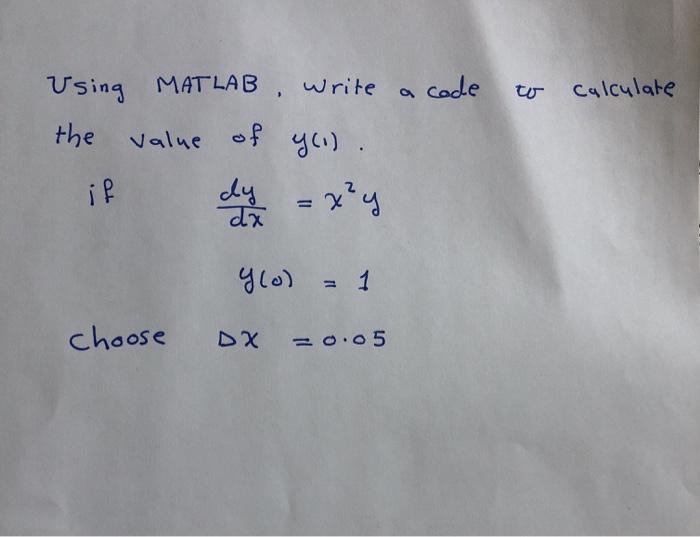 Using MATLAB, write a code to calculate
the value of y(1).
if dy/dx = x²y
y(0) = 1
choose Δx = 0.05